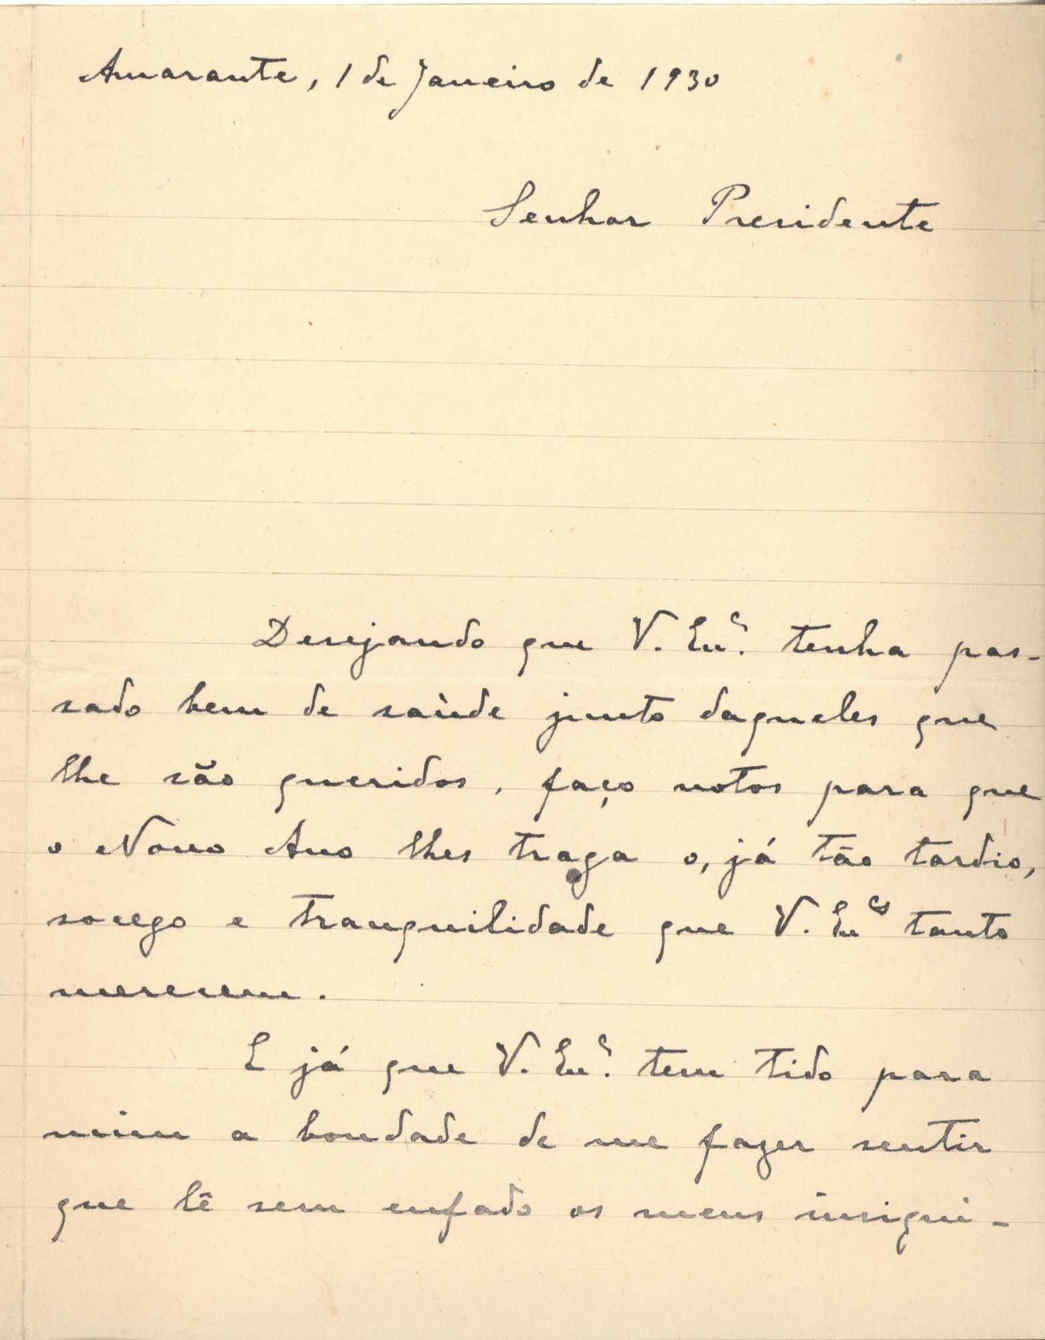 Amarante, 1 de Janeiro de 1930
Senhor Presidente
Desejando que V. Ex.ª tenha pas-
sado bem de saùde junto daqueles que
lhe são queridos, faço votos para que
o Novo Ano lhes traga o, já tão tardio,
socego e tranquilidade que V. Ex.as tanto
merecem.
E já que V. Ex.ª tem tido para
mim a bondade de me fazer sentir
que lê sem enfado os meus insigni-